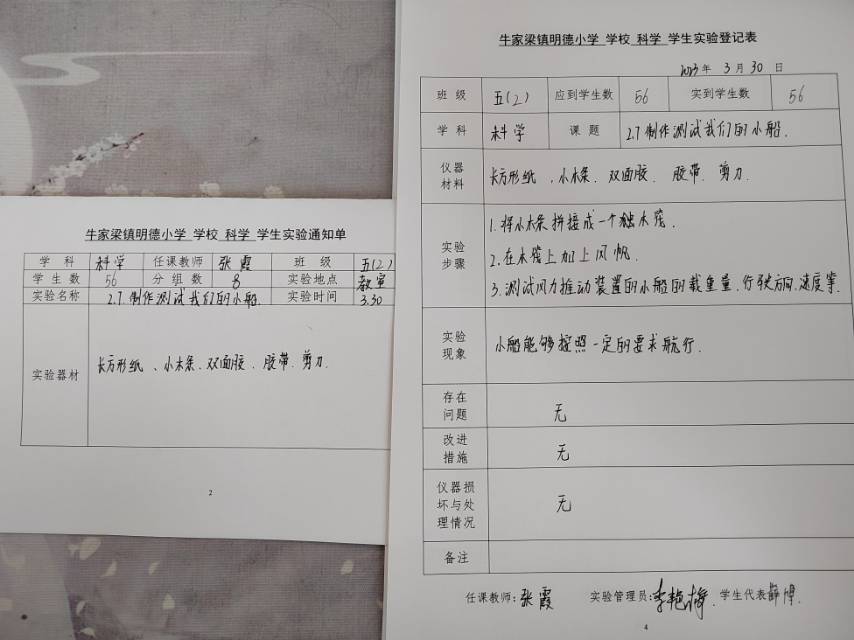 牛家梁镇明德小学 学校 科学 学生实验通知单
学 科 科学 任课教师 张霞 班 级 五(2)
学 生 数 56 分 组 数 8 实验地点 教室
实验名称 2.7 制作测试我们的小船. 实验时间 3.30
实验器材 长方形纸、小木条、双面胶、胶带、剪刀.
2
牛家梁镇明德小学 学校 科学 学生实验登记表
2023年 3 月 30 日
班 级 五(2) 应到学生数 56 实到学生数 56
学 科 科学 课 题 2.7制作测试我们的小船.
仪器
材料
长方形纸、小木条、双面胶、胶带、剪刀.
实验
步骤
1.将小木条拼接成一个独木筏.
2.在木筏上加上风帆.
3.测试风力推动装置的小船的载重量、行驶方向、速度等.
实验
现象
小船能够按照一定的要求航行.
存在
问题
无
改进
措施
无
仪器损
坏与处
理情况
无
备注
任课教师:张霞 实验管理员:李艳梅 学生代表:薛博.
4